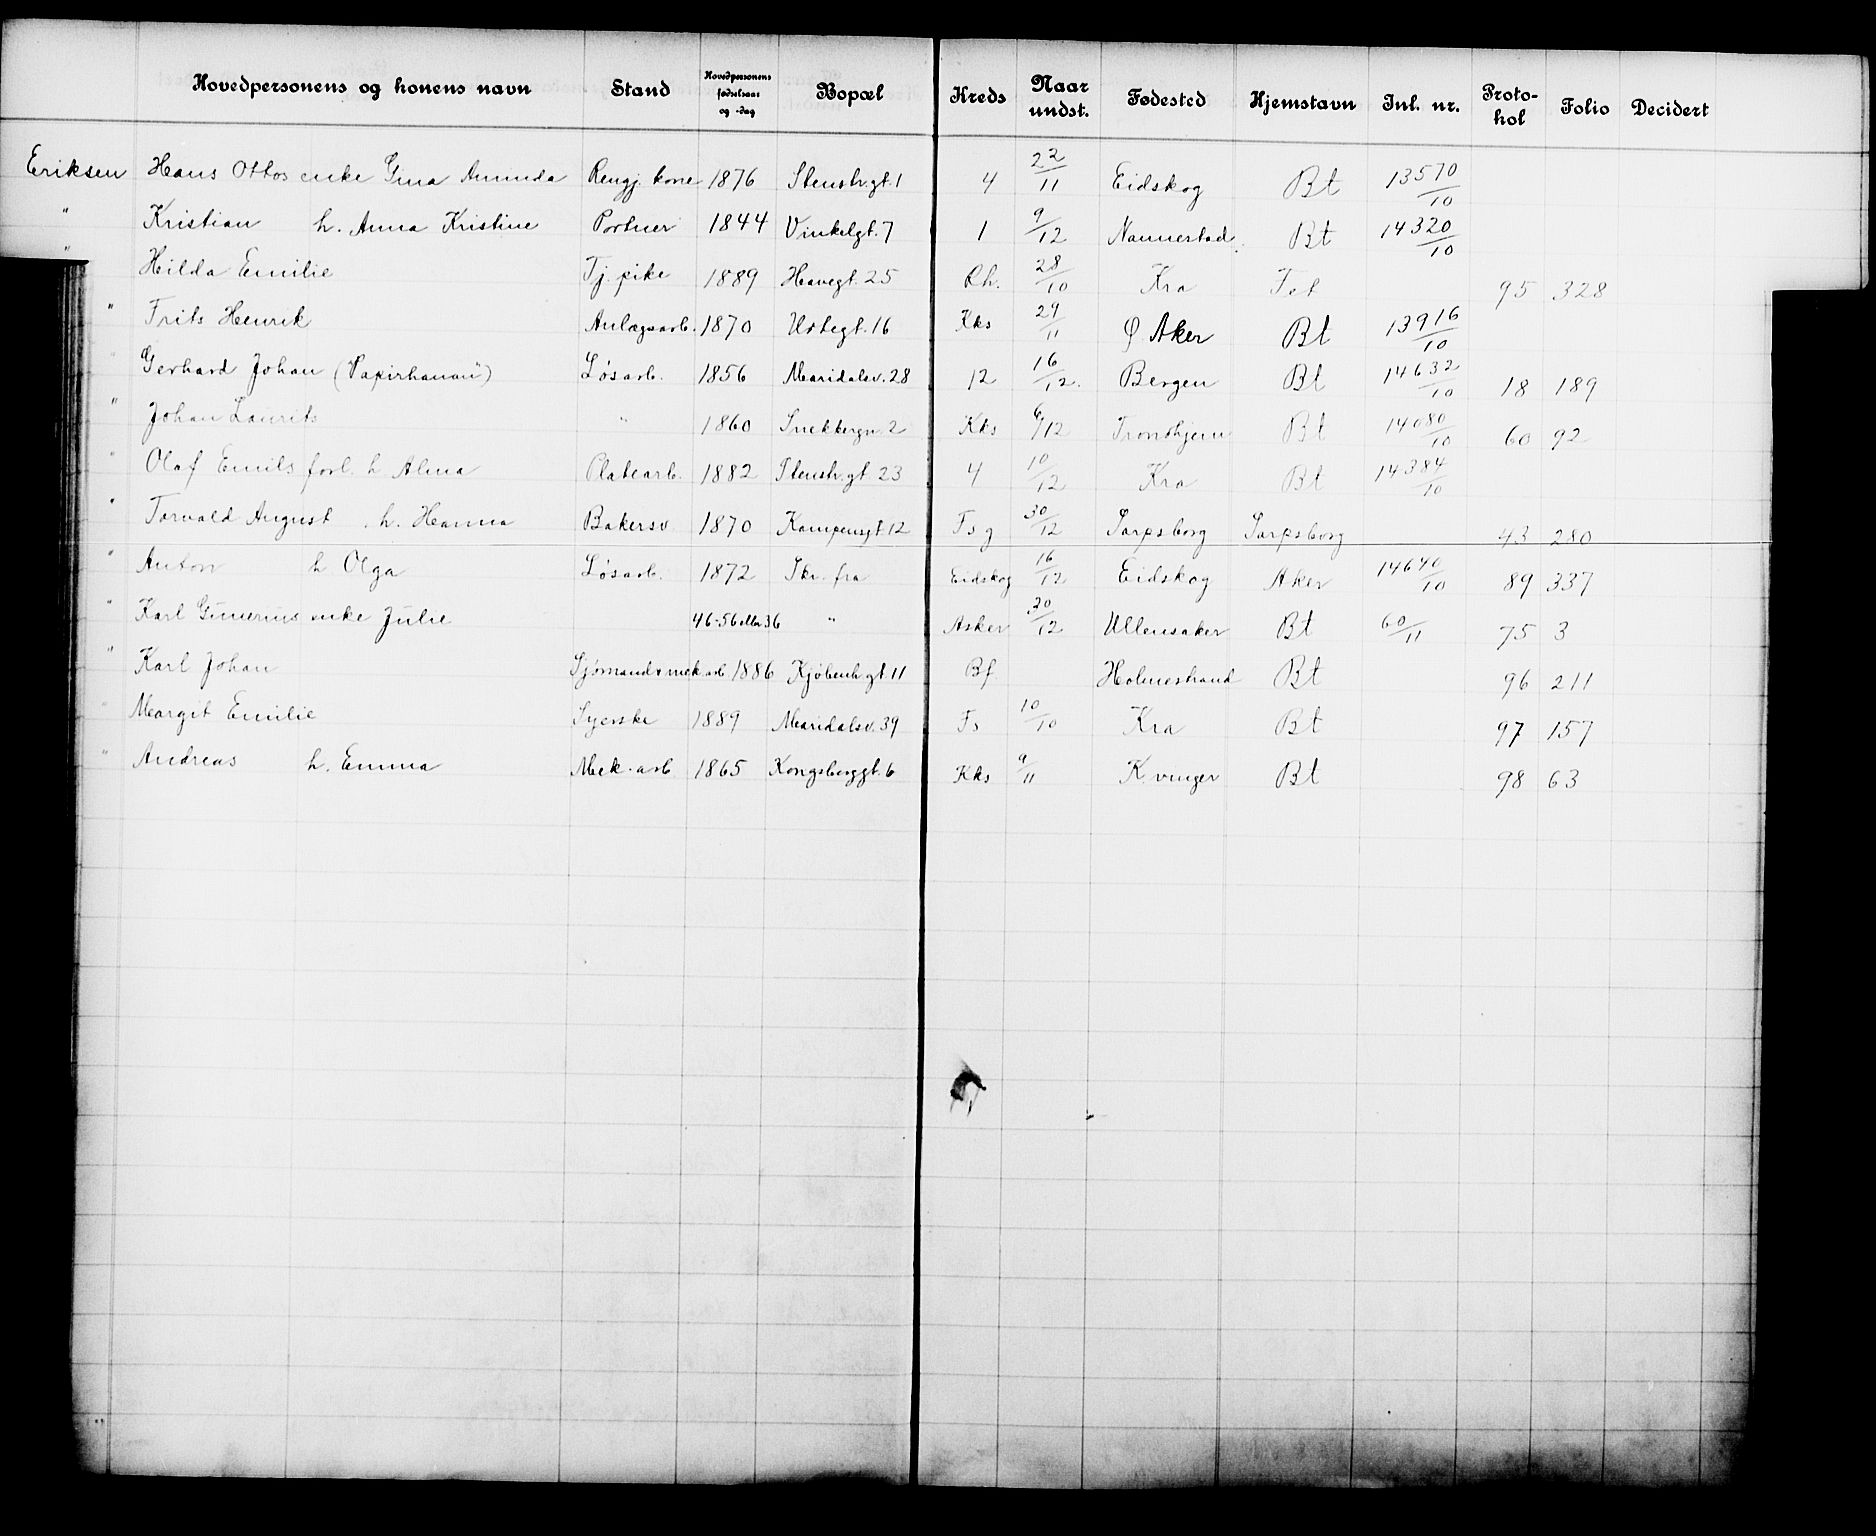 Hovedpersonens og konens navn Stand Hovedpersonens fødselsaar og -dag Bopæl Kreds Naar undst. Fødested Hjemstavn Inl. nr. Protokol Folio Decidert
Eriksen Hans Ottos enke Gina Amunda Rengj. kone 1876 Stenstr.gt. 1 4 22/11 Eidskog Bt 13570/10
" Kristian h. Anna Kristine Portner 1844 Vinkelgt. 7 1 9/12 Nannestad Bt 14320/10
" Hilda Emilie Tj. pike 1889 Havegt. 25 Rh. 28/10 Kra Fet 95 328
" Frits Henrik Anlægsarb. 1870 Urtegt. 16 Kks 29/11 Ø Aker Bt 13916/10
" Gerhard Johan ("Papirkanan") Løsarb. 1856 Maridalsv. 28 12 16/12. Bergen Bt 14632/10 18 189
" Johan Laurits " 1860 Snekkergn. 2 Kks 6/12 Trondhjem Bt 14080/10 60 92
" Olaf Emils forl. h Alma Platearb. 1882 Stenstr.gt. 23 4 10/12 Kra Bt 14384/10
" Torvald August h. Hanna Bakersv 1870 Kampensgt. 12 Fsg 30/12 Sarpsborg Sarpsborg 43 280
" Anton h Olga Løsarb. 1872 Skr. fra Eidskog 16/12 Eidskog Aker 14640/10 89 337
" Karl Gunerius enke Julie 46-56 eller 36 " Asker 30/12 Ullensaker Bt 60/11 75 3
" Karl Johan Sjømand & mek arb 1886 Kjøbenh.gt. 11 Bf Holmestrand Bt 96 211
" Margit Emilie Syerske 1889 Maridalsv. 39 Fs 10/10 Kra Bt 97 157
" Andreas h. Emma Mek. arb 1865 Kongsberggt. 6 Kks 9/11 K.vinger Bt 98 63